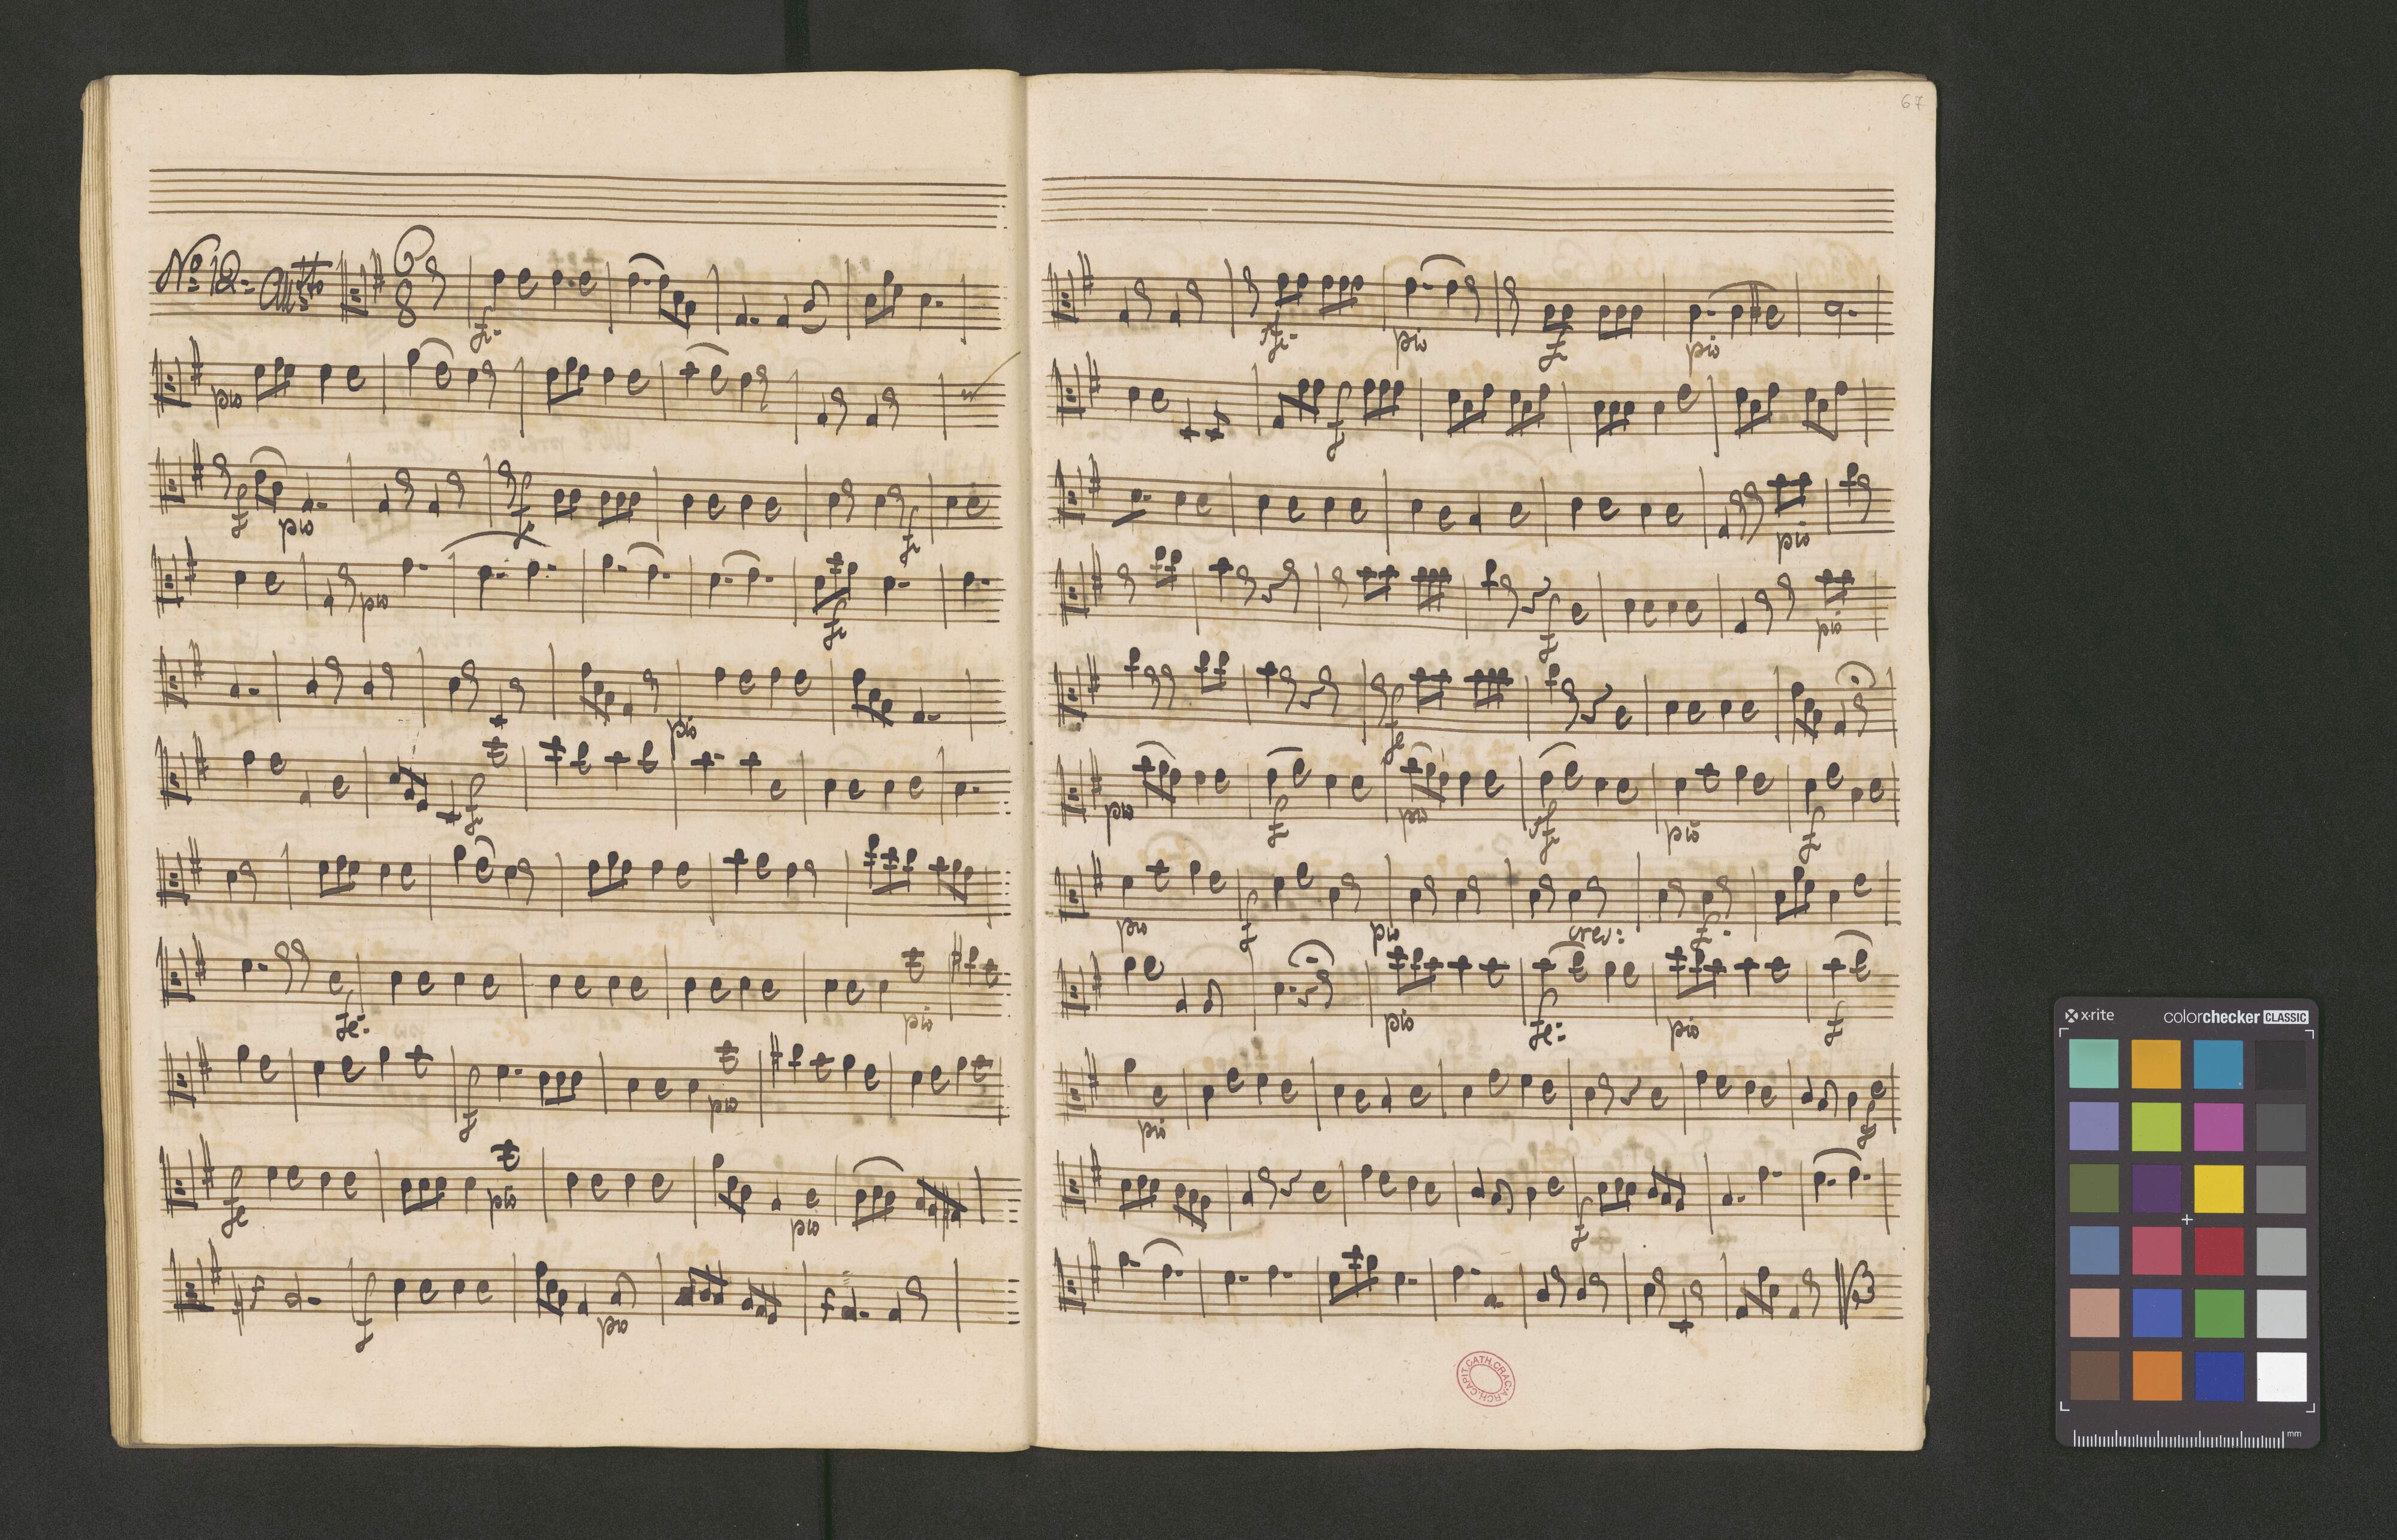 No: 12. Alltto 6/8
fe:
pio
f pio f fe
pio fe
pio
f
fe: pio
f pio
fe pio pio
f pio
67
fe: pio f pio
f
pio
f pio
fe
pio f pio f pio f
pio f pio cres: f:
pio fe: pio f
pio f
f
CAPIT.CATH.CRAC.ARCH.
x-rite colorchecker CLASSIC
mm